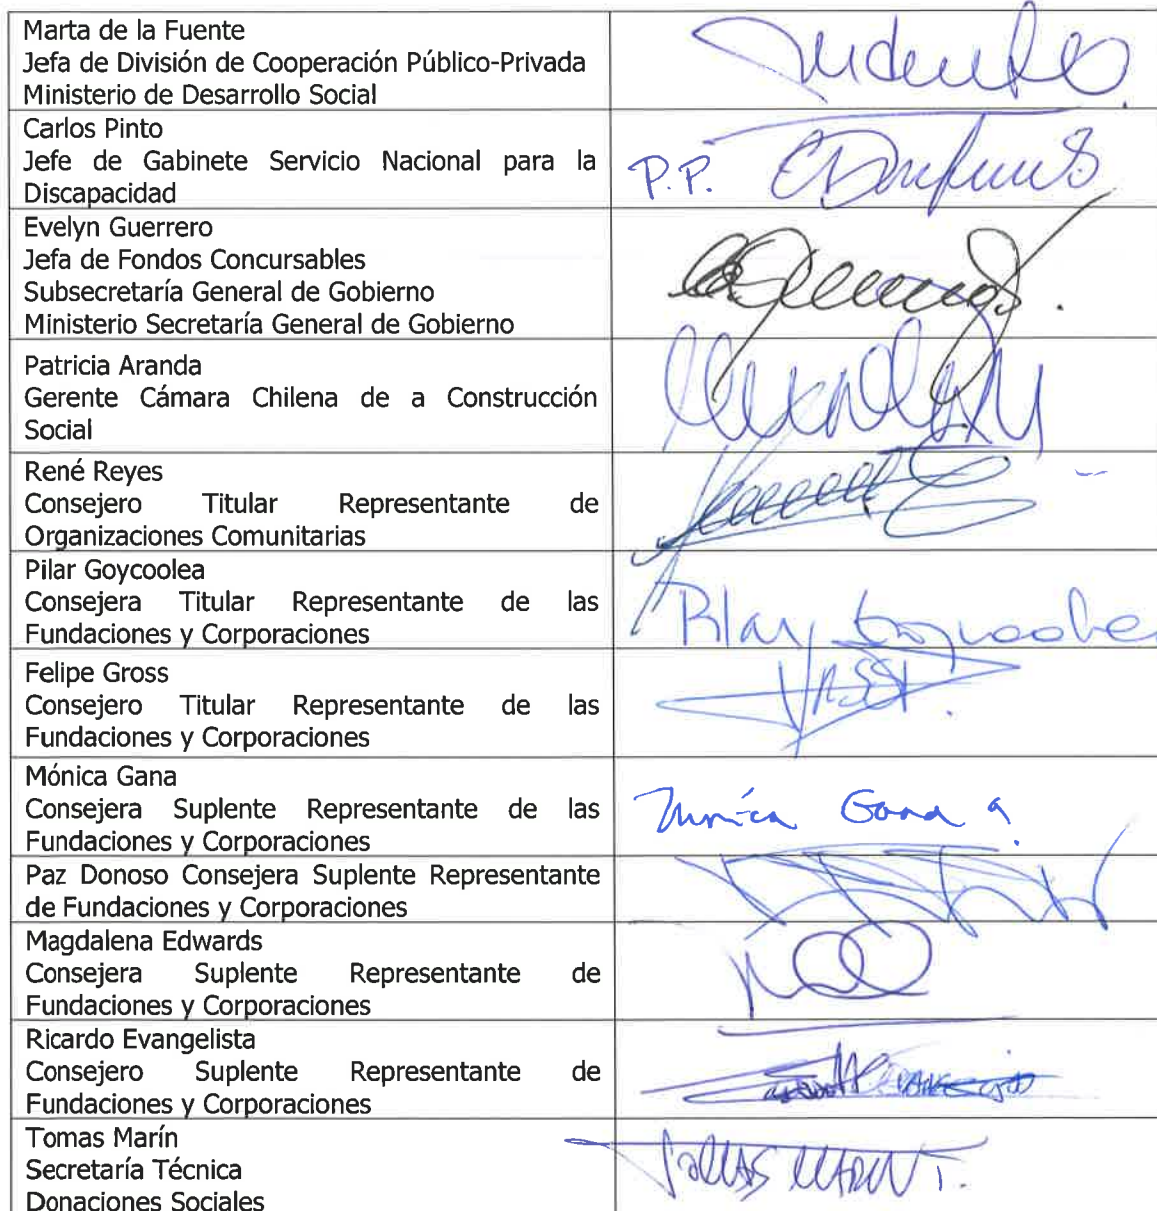 Marta de la Fuente
Jefa de División de Cooperación Público-Privada
Ministerio de Desarrollo Social
Carlos Pinto
Jefe de Gabinete Servicio Nacional para la
Discapacidad
P.P.
Evelyn Guerrero
Jefa de Fondos Concursables
Subsecretaría General de Gobierno
Ministerio Secretaría General de Gobierno
Patricia Aranda
Gerente Cámara Chilena de a Construcción
Social
René Reyes
Consejero Titular Representante de
Organizaciones Comunitarias
Pilar Goycoolea
Consejera Titular Representante de las
Fundaciones y Corporaciones
Pilar Goycoolea
Felipe Gross
Consejero Titular Representante de las
Fundaciones y Corporaciones
Mónica Gana
Consejera Suplente Representante de las
Fundaciones y Corporaciones
Mónica Gana
Paz Donoso Consejera Suplente Representante
de Fundaciones y Corporaciones
Magdalena Edwards
Consejera Suplente Representante de
Fundaciones y Corporaciones
Ricardo Evangelista
Consejero Suplente Representante de
Fundaciones y Corporaciones
Tomas Marín
Secretaría Técnica
Donaciones Sociales
Tomas Marin T.